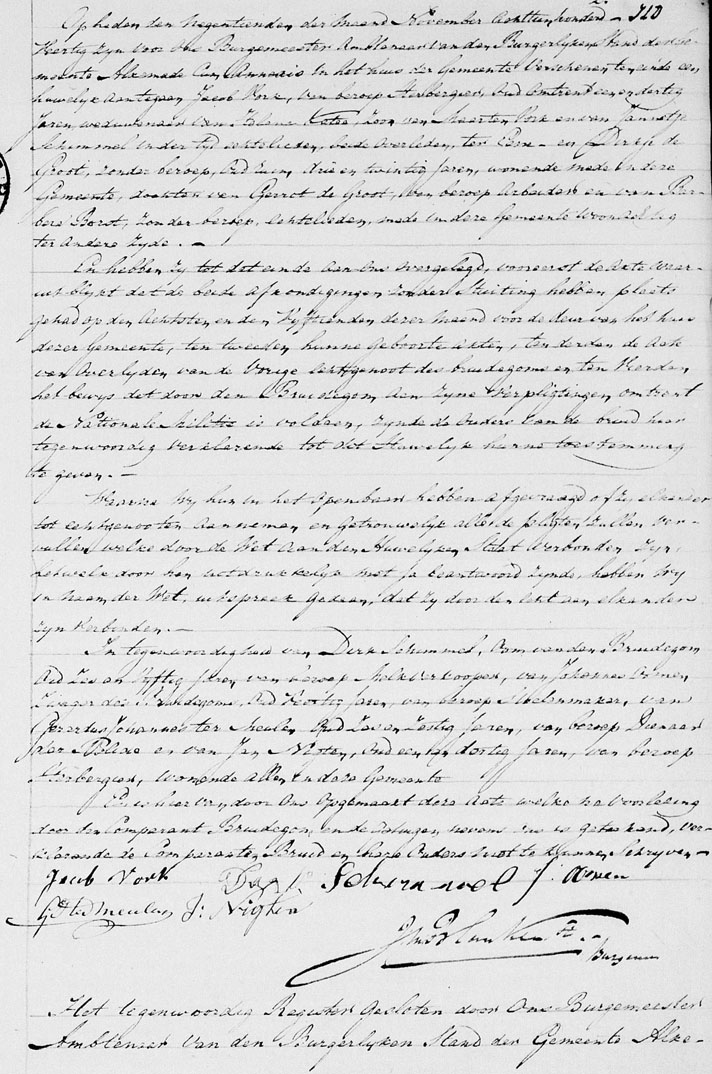 Op heden den Negentienden der Maand November Achttienhonderd 710
Veertig Zyn voor Ons Burgemeester Ambtenaar van den Burgerlyken Stand der Ge-
meente Alkemade Cum Annexis In het huis der Gemeente Verschenen ten einde een
huwelyk Aantegaan Jacob Vork, van beroep Herbergier, Oud Omtrent een en dertig
Jaren, weduwenaar van Zoon van Maarten Vork en van Jannetje
Schimmel In der tyd echtelieden, beide Overleden, ter Eene – en Dirkje de
Groot, Zonder beroep, Oud drie en twintig Jaren, wonende mede In deze
Gemeente, dochter van Gerrit de Groot, van beroep Arbeider en van Bar-
bara Borst, Zonder beroep, echtelieden, mede in deze Gemeente Woonachtig
ter Andere Zyde. –
En hebben Zy tot dat einde Aan Ons Overgelegd, vooreerst de Acte Waar-
uit blykt dat de beide Afkondigingen Zonder Stuiting hebben plaats
gehad op den Achtsten en den Vyftienden dezer Maand voor de deur van het huis
dezer Gemeente, ten tweeden hunne Geboorte Akten, ten derden de Acte
van Overlyden van de Vorige echtgenoot des bruidegoms en ten Vierden
het bewys dat door den Bruidegom Aan Zyne Verpligtingen omtrent
de Nationale Militie is voldaan, Zynde de Ouders van de bruid hier
tegenwoordig Verklarende tot dit Huwelyk hunne toestemming
te geven. –
Waarna Wy hun in het Openbaar hebben afgevraagd of Zy elkander
tot echtgenooten Aannemen en Getrouwelyk alle de pligten Zullen ver-
vullen welke door de Wet Aan den Huwelyken Staat Verbonden Zyn,
hetwelk door hen uitdrukkelyk met Ja beantwoord Zynde, hebben Wy
in naam der Wet, uitspraak Gedaan, dat Zy door den echt aan elkander
Zyn Verbonden. –
In tegenwoordigheid van Dirk Schimmel, Oom van den Bruidegom
Oud Zes en Vyftig Jaren van beroep Melkverkooper, van Johannes
Zwager des Bruidegoms, Oud Veertig Jaren, van beroep Molenmaker, van
Gerardus Johannes ter Meulen Oud Zes en Zestig Jaren, van beroep Dienaar
der Policie en van Jan Oud een en dertig Jaren, van beroep
Herbergier, wonende allen in deze Gemeente
En is hier van, door Ons Opgemaakt deze Acte welke na Voorlezing
door den Comparant Bruidegom, en de Getuigen nevens Ons is geteekend, Ver-
klarende de Comparanten Bruid en hare Ouders niet te kunnen Schryven –
Jacob Vork Schimmel J.
G J ter Meulen J:
Burgem
Het tegenwoordig Register Gesloten door Ons Burgemeester
Ambtenaar van den Burgerlyken Stand der Gemeente Alke-